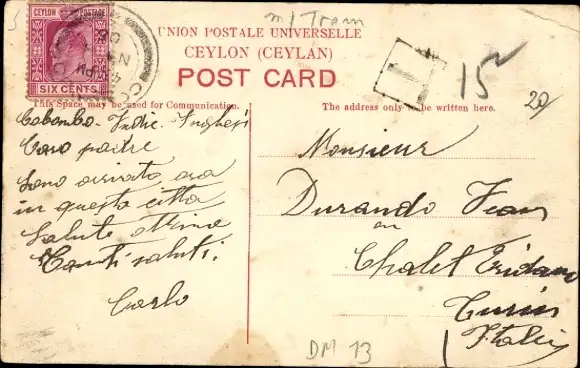 m/ Tram
CEYLON POSTAGE
SIX CENTS
UNION POSTALE UNIVERSELLE
CEYLON (CEYLAN)
POST CARD
T
15
20
This Space may be used for Communication.
The address only to be written here.
Colombo. Indie. Inglesi
Caro padre
Sono arrivato ora
in questa città
Salute ottima
Tanti saluti.
Carlo
Monsieur
Durando Jean
au
Chalet Eridano
Turin
Italie
DM 13